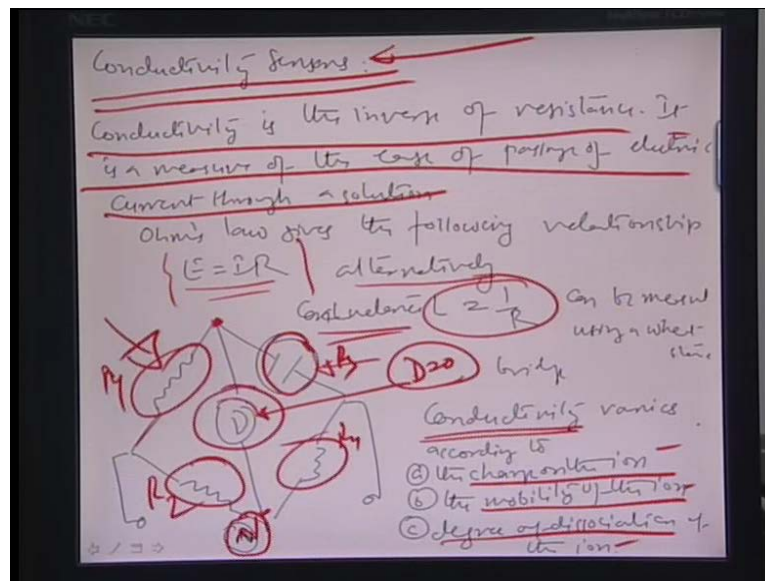 NEC
Conductivity Sensors :
Conductivity is the inverse of resistance. It
is a measure of the ease of passage of electric
current through a solution
Ohm's law gives the following relationship
E = IR alternatively
Conductance L = 1/R can be measured
using a wheat-
stone
bridge
D=0
R1
R3
D
R2
R4
N
Conductivity varies
according to
(a) the charge on the ion
(b) the mobility of the ion
(c) degree of dissociation of
the ion